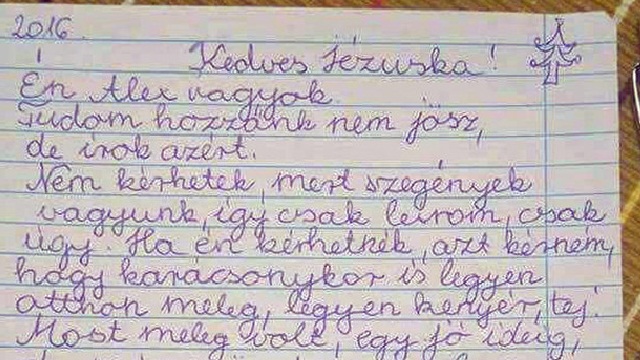 2016.
Kedves Jézuska!
Én Alex vagyok.
Tudom hozzánk nem jösz,
de irok azért.
Nem kérhetek, mert szegények
vagyunk, igy csak leirom, csak
úgy. Ha én kérhetnék, azt kérném,
hogy karácsonykor is legyen
otthon meleg, legyen kenyér, tej.
Most meleg volt, egy jó ideig,